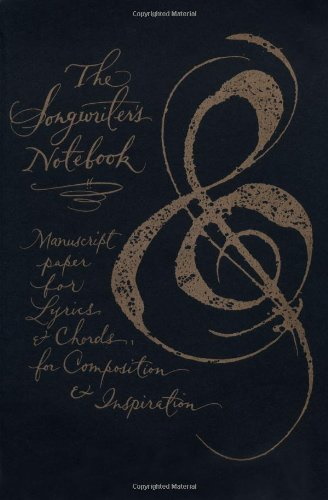 Copyrighted Material
The
Songwriter's
Notebook
Manuscript
paper
for
Lyrics
& Chords,
for Composition
& Inspiration
Copyrighted Material